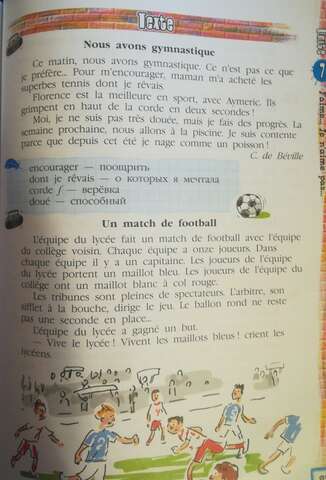 Texte
Nous avons gymnastique
Ce matin, nous avons gymnastique. Ce n'est pas ce que
je préfère... Pour m'encourager, maman m'a acheté les
superbes tennis dont je rêvais.
Florence est la meilleure en sport, avec Aymeric. Ils
grimpent en haut de la corde en deux secondes!
Moi, je ne suis pas très douée, mais je fais des progrès. La
semaine prochaine, nous allons à la piscine. Je suis contente
parce que depuis cet été je nage comme un poisson!
C. de Béville
encourager — поощрить
dont je rêvais — о которых я мечтала
corde f — верёвка
doué — способный
Un match de football
L'équipe du lycée fait un match de football avec l'équipe
du collège voisin. Chaque équipe a onze joueurs. Dans
chaque équipe il y a un capitaine. Les joueurs de l'équipe
du lycée portent un maillot bleu. Les joueurs de l'équipe du
collège ont un maillot blanc à col rouge.
Les tribunes sont pleines de spectateurs. L'arbitre, son
sifflet à la bouche, dirige le jeu. Le ballon rond ne reste
pas une seconde en place...
L'équipe du lycée a gagné un but.
— Vive le lycée! Vivent les maillots bleus! crient les
lycéens.
7
J'aime... Je n'aime pas...